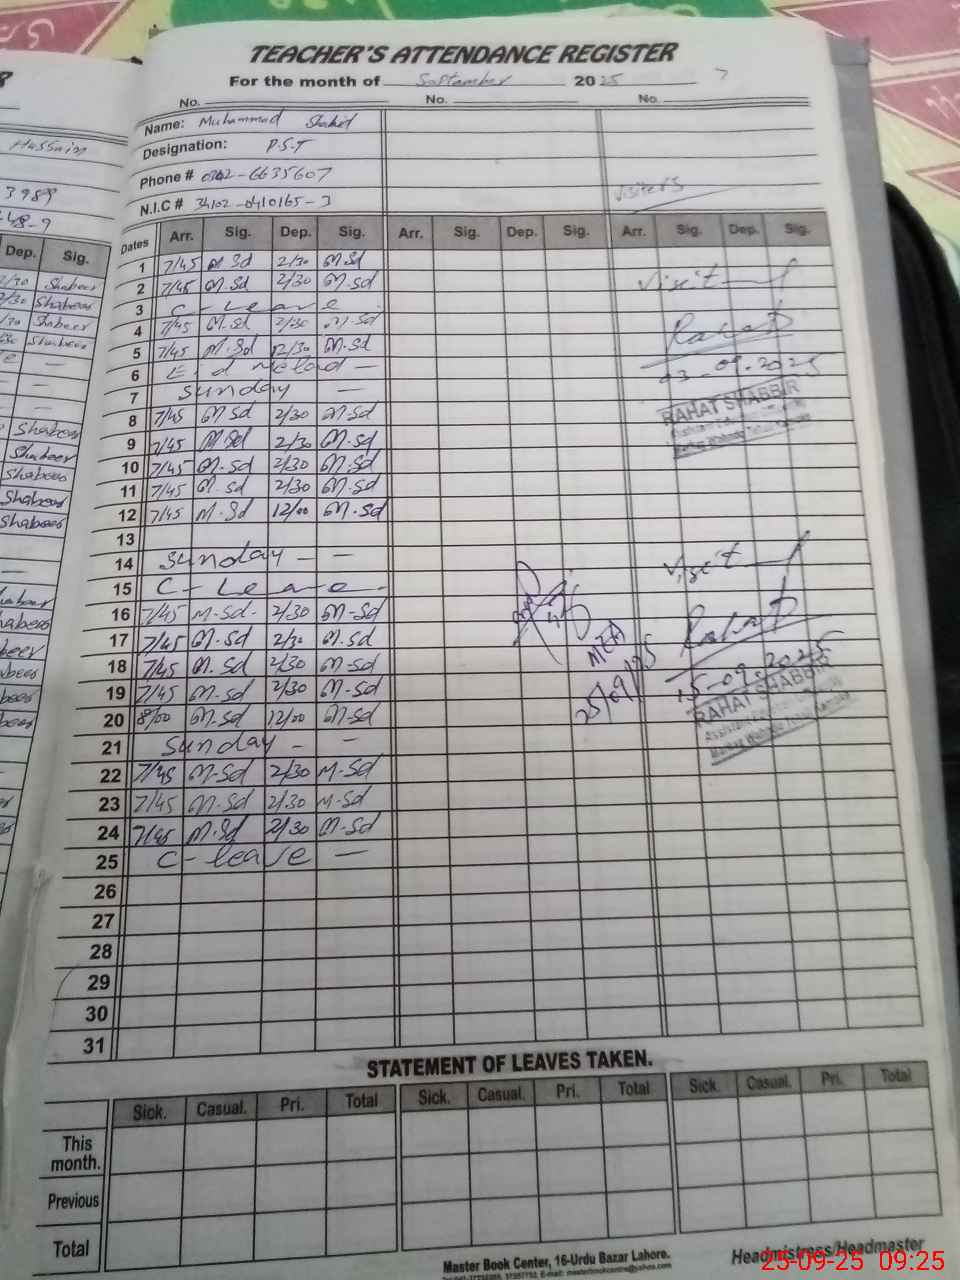 TEACHER'S ATTENDANCE REGISTER
For the month of Sastember 2025
No. No. No.
Name: Muhammad Shahid
Designation: P.S.T
Phone # 0342-6635607
N.I.C # 34102-0410165-3
Visiters
Dates Arr. Sig. Dep. Sig. Arr. Sig. Dep. Sig. Arr. Sig. Dep. Sig.
1 7/45 M Sd 2/30 M Sd
2 7/45 M.Sd 2/30 M.Sd
3 C-Leave
4 7/45 M.Sd 2/30 M-Sd
5 7/45 M.Sd 12/30 M.Sd
6 E d melad —
7 Sunday —
8 7/45 M Sd 2/30 M-Sd
9 7/45 M Sd 2/30 M-Sd
10 7/45 M.Sd 2/30 M.Sd
11 7/45 M.Sd 2/30 M.Sd
12 7/45 M.Sd 12/00 M.Sd
13
14 Sunday - —
15 C-Leave-
16 7/45 M-Sd- 2/30 M-Sd
17 7/45 M.Sd 2/30 M.Sd
18 7/45 M.Sd 2/30 M.Sd
19 7/45 M-Sd 2/30 M-Sd
20 8/00 M.Sd 12/00 M-Sd
21 Sunday - —
22 7/45 M-Sd 2/30 M-Sd
23 7/45 M-Sd 2/30 M-Sd
24 7/45 M.Sd 2/30 M-Sd
25 C-leave —
26
27
28
29
30
31
Visit
Rahat
03-09-2025
RAHAT SHABBIR
Visit
Rahat
15-09-2025
RAHAT SHABBIR
MEA
25/09/25
STATEMENT OF LEAVES TAKEN.
Sick. Casual. Pri. Total Sick. Casual. Pri. Total Sick. Casual. Pri. Total
This month.
Previous
Total
Master Book Center, 16-Urdu Bazar Lahore.
Headmistress/Headmaster
25-09-25 09:25
Hussain
3989
48-9
Dep. Sig.
2/30 Shabeer
2/30 Shabeer
Shabeer
Shabeer
Shabeer
Shabeer
Shabeer
Shabeer
Shabeer